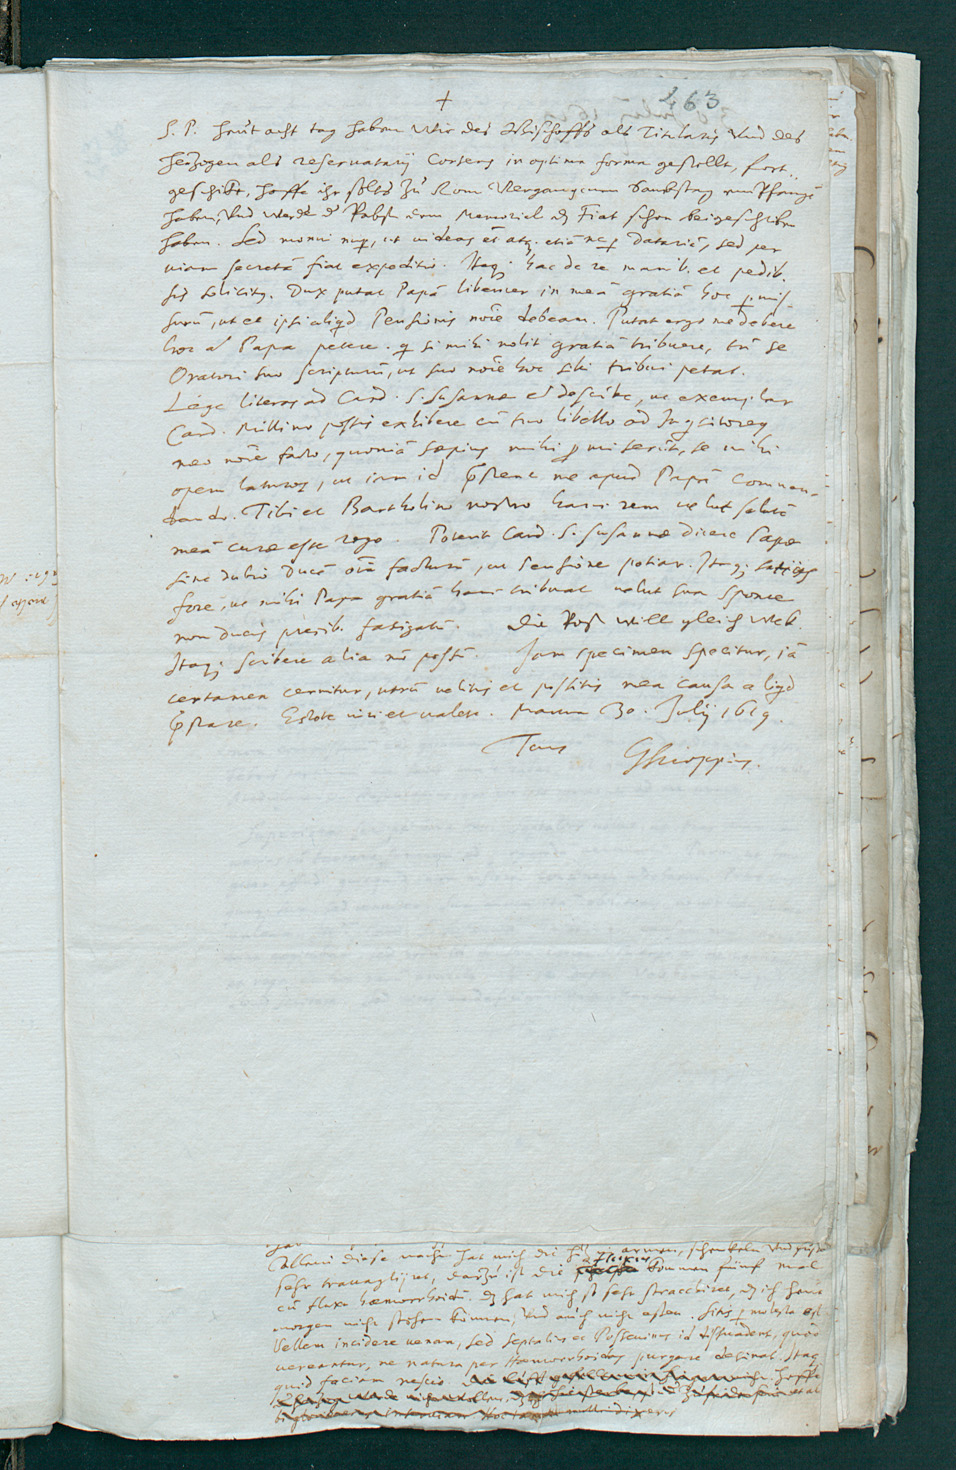 463
+
S. P. Heut acht tag haben wir des Bischoffs als Titularis und des
Herzogen als reservatarij Consens in optima forma gestellt, fort
geschikt, hoffe ihr solts zu Rom vergangenen Sambstag empfangen
haben, und werde der Pabst dem Memorial dz Fiat schon beigeschriben
haben. Sed monui nup, ut videas etiā datariā, sed per
viam secretā fiat expeditio. Itaq; hac de re manib. et pedib.
sis solicitq. Dux putat Papā libenter in meā gratiā hoc pmis
surū, ut et ipsi aliqd Pensionis noīe debeam. Putat ergo me debere
hoc a Papa petere. q si mihi nolit gratiā tribuere, tū se
Oratori suo scripturū, ut suo noīe hoc sibi tribui petat.
Lege literas ad Card. S. Susannæ et describe, ut exemplar
Card. Millino possis exhibere cū tuo libello ad
meo noīe facto, quoniā sæpius mihi pmiserit, se mihi
opem laturū, ut iam id pstent me apud Papā commen-
dando. Tibi et Bartholino nostro hanc rem velut salutē
meā curæ esse rogo. Poterit Card. S. Susannæ dicere Papæ
sine dubio Ducē oīa facturū, ut Pensione potiar. Itaq; satius
fore, ut mihi Papa gratiā hanc tribuat velut sua sponte
non ducis precib. fatigatū. Die Post will gleich wek.
Itaq; scribere alia nō possū. Jam specimen specitur, iā
certamen cernitur, utrū velitis et possitis mea causa aliqd
pstare. Estote viri et valete. Mantua 30. Julij 1619.
Tuus GScioppius.
Allein diese nacht hat mich die hiz armen, schenkeln und füss
sehr travaglijret, darzu ist die fluxus kommen fünf mal
cū fluxu hæmorrhoidū. dz hat mich so sehr stracchiret, dz ich heut
morgen nicht stehen können, und auch nicht essen. Sitis p molesta est
Vellem incidere venam, sed Septalius et Possevinus id dissuadent, quod
vereantur, ne natura per Hæmorrhoidas purgare desinat. Itaq
quid faciam nescio hoffe